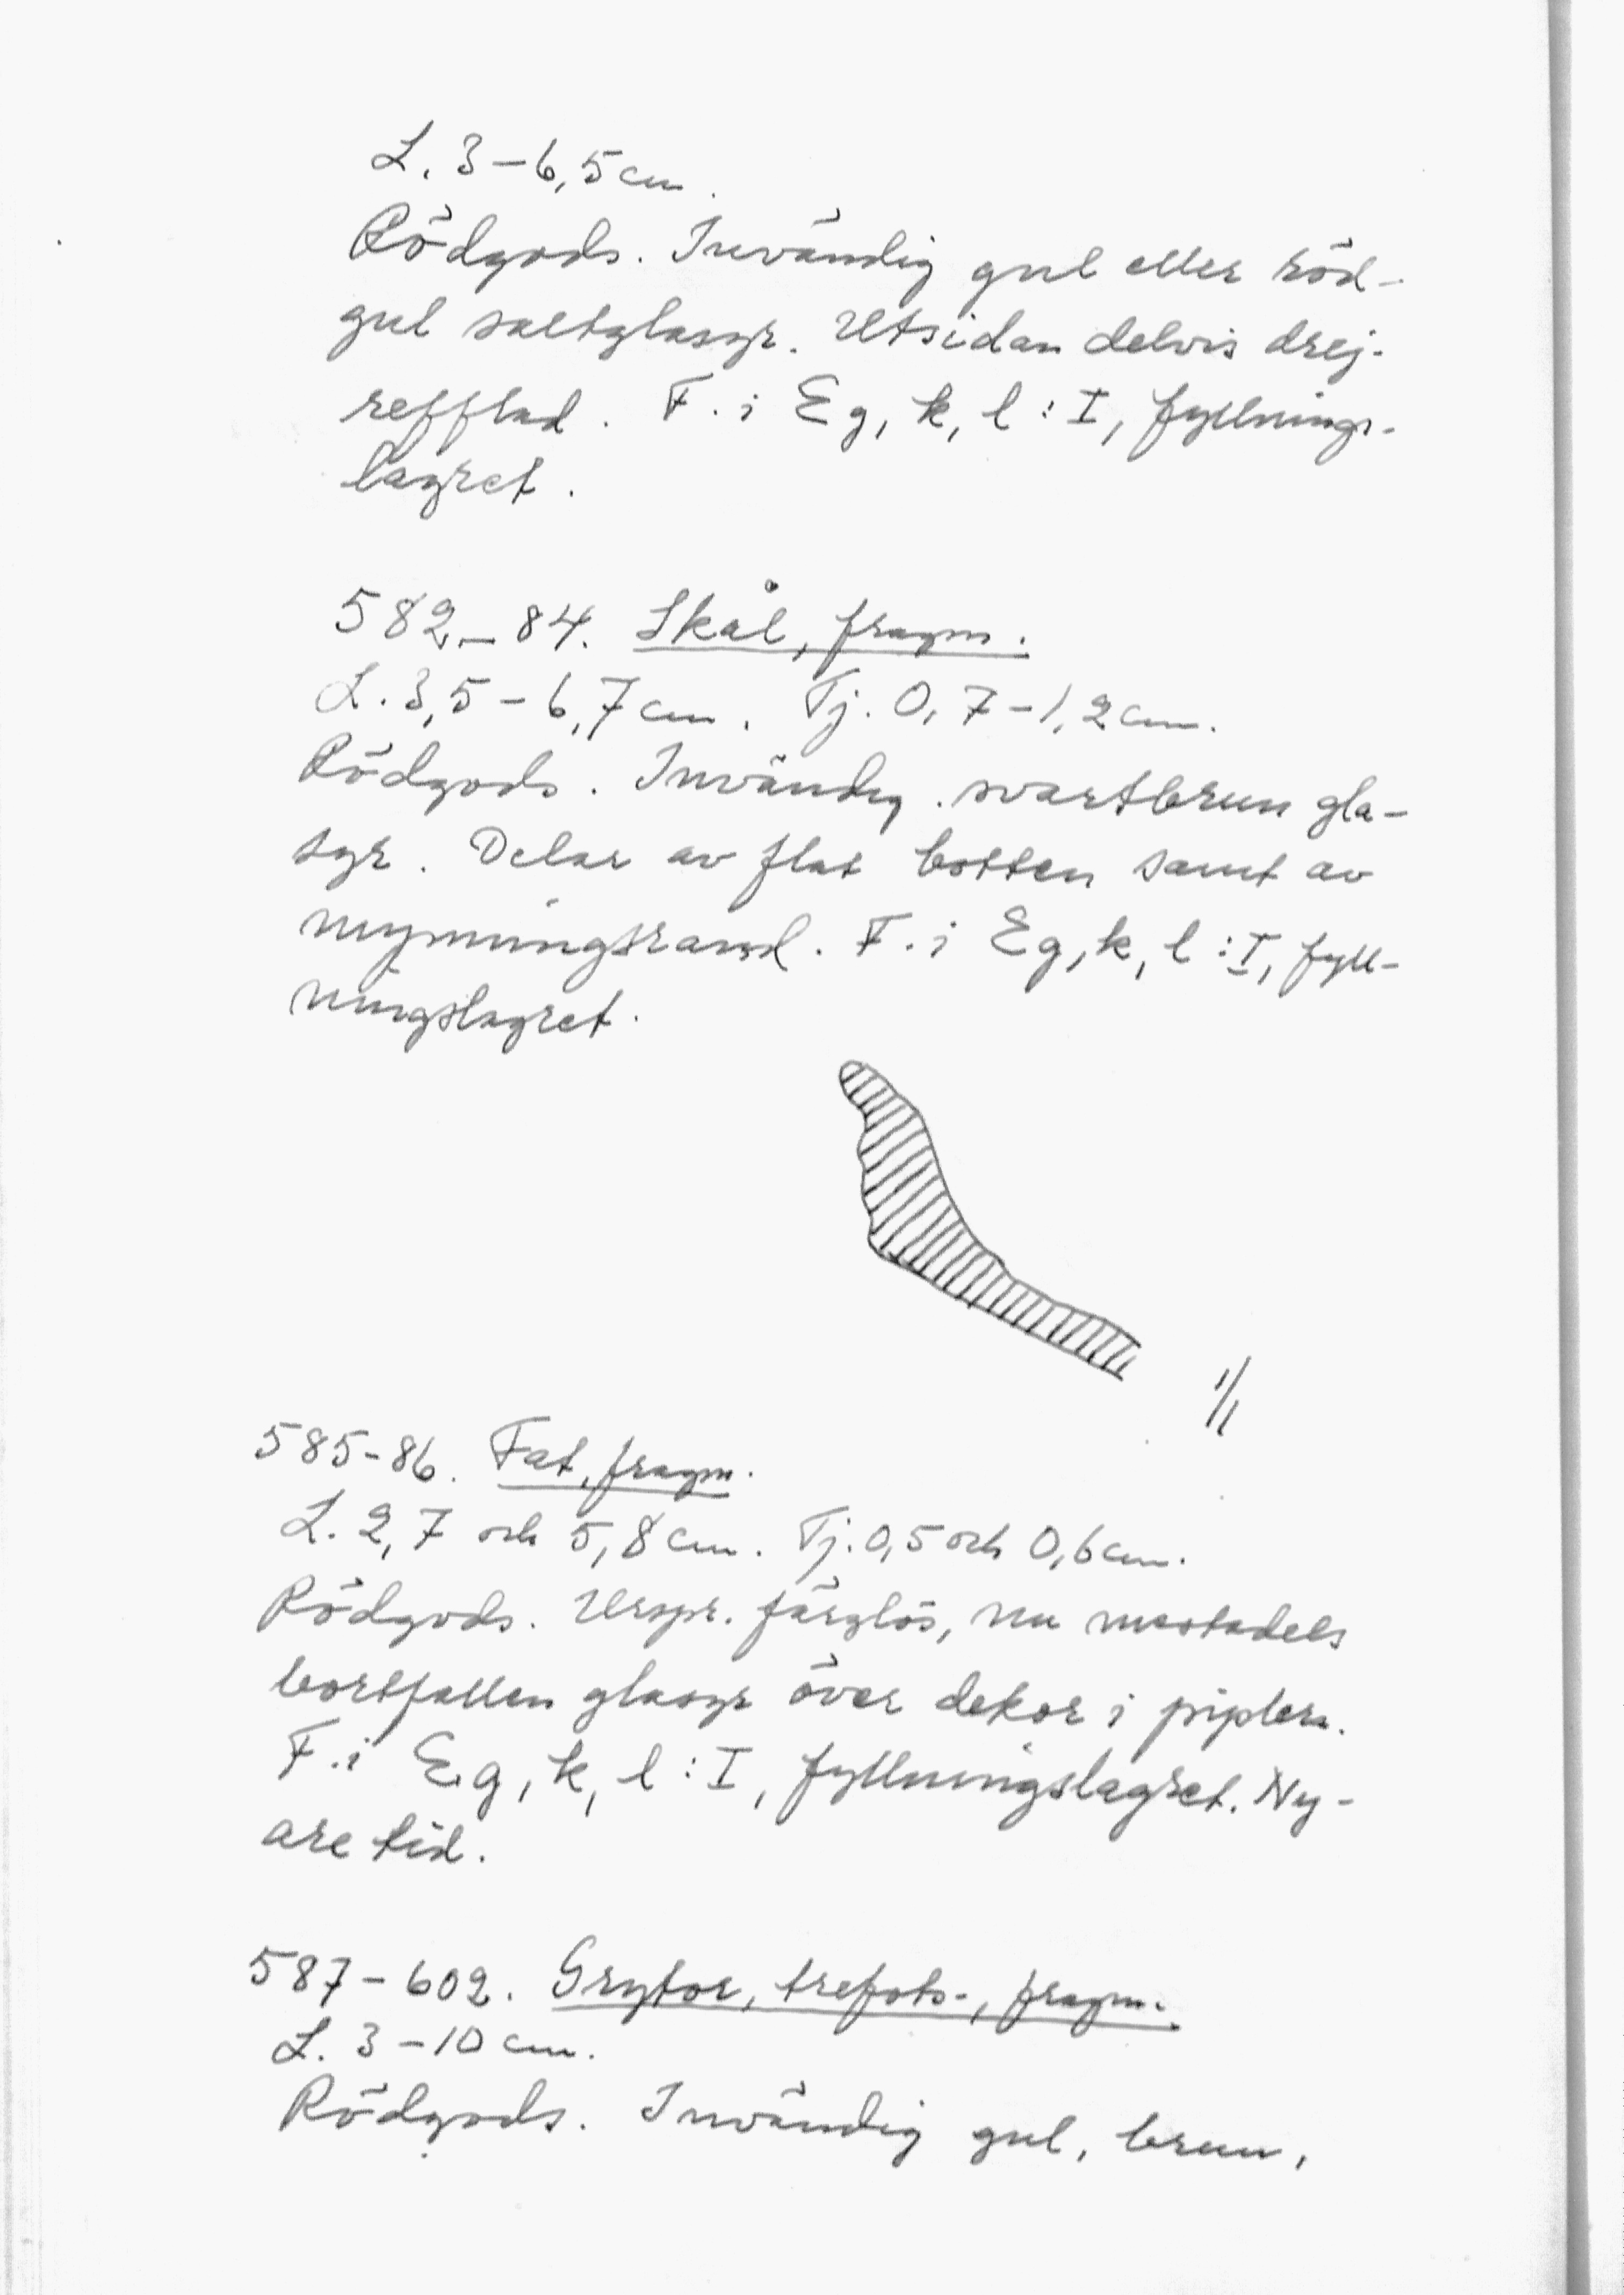 L. 3–6,5 cm.
Rödgods. Invändig gul eller röd-
gul saltglasyr. Utsidan delvis drej-
refflad. F. i Eg, k, l : I, fyllnings-
lagret.
582–84. Skål, fragm.
L. 3,5–6,7 cm. Tj. 0,7–1,2 cm.
Rödgods. Invändig svartbrun gla-
syr. Delar av flat botten samt av
mynningsrand. F. i Eg, k, l : I, fyll-
ningslagret.
1/1
585–86. Fat, fragm.
L. 2,7 och 5,8 cm. Tj. 0,5 och 0,6 cm.
Rödgods. Urspr. färglös, nu mestadels
bortfallen glasyr över dekor i piplera.
F. i Eg, k, l : I, fyllningslagret. Ny-
are tid.
587–602. Grytor, trefots-, fragm.
L. 3–10 cm.
Rödgods. Invändig gul, brun,